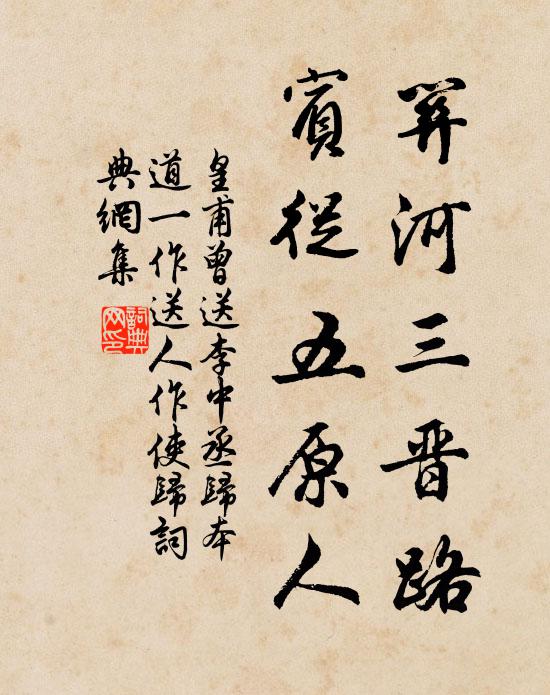 關河三晉路
賓從五原人
皇甫曾送李中丞歸本
道一作送人作使歸詞
典網集
詞典网印